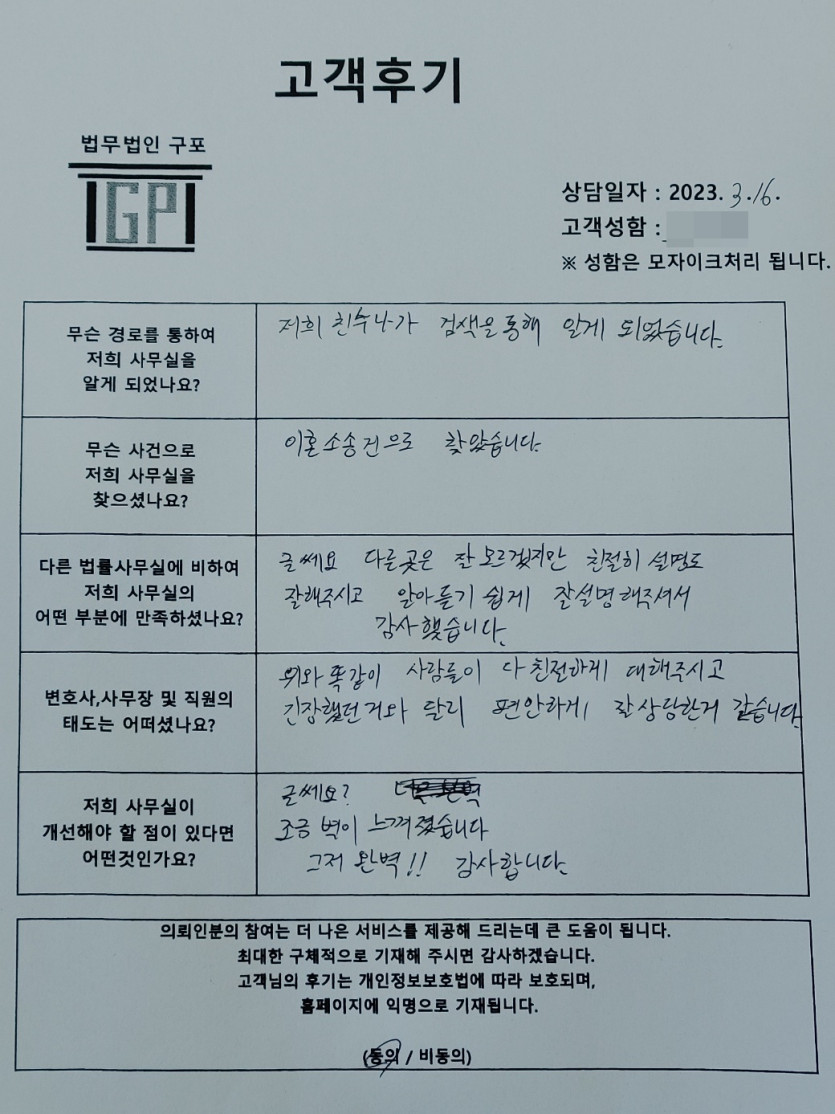 고객후기
법무법인 구포
GP
상담일자 : 2023. 3. 16.
고객성함 :
※ 성함은 모자이크처리 됩니다.
무슨 경로를 통하여
저희 사무실을
알게 되었나요?
저희 친누나가 검색을 통해 알게 되었습니다.
무슨 사건으로
저희 사무실을
찾으셨나요?
이혼소송건으로 찾았습니다.
다른 법률사무실에 비하여
저희 사무실의
어떤 부분에 만족하셨나요?
글쎄요 다른곳은 잘 모르겠지만 친절히 설명도
잘해주시고 알아듣기 쉽게 잘설명해주셔서
감사했습니다.
변호사,사무장 및 직원의
태도는 어떠셨나요?
위와 똑같이 사람들이 다 친절하게 대해주시고
긴장했던거와 달리 편안하게 잘상담한거 같습니다.
저희 사무실이
개선해야 할 점이 있다면
어떤것인가요?
글쎄요?
조금 벽이 느껴졌습니다
그저 완벽!! 감사합니다.
의뢰인분의 참여는 더 나은 서비스를 제공해 드리는데 큰 도움이 됩니다.
최대한 구체적으로 기재해 주시면 감사하겠습니다.
고객님의 후기는 개인정보보호법에 따라 보호되며,
홈페이지에 익명으로 기재됩니다.
(동의 / 비동의)